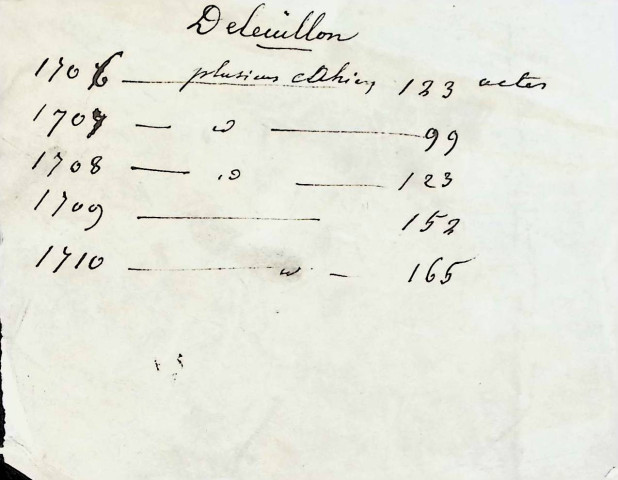 Deleüillon
1706 — plusieurs cahiers 123 actes
1707 — id — 99
1708 — id — 123
1709 — 152
1710 — id — 165